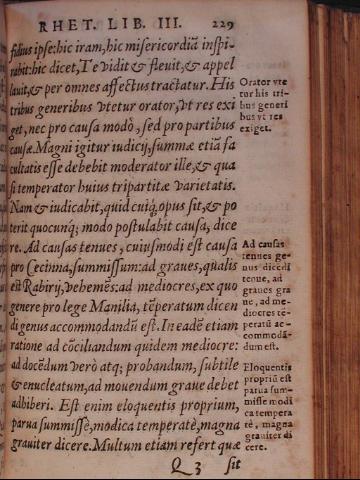 RHET. LIB. III. 229
fidius ipse: hic iram, hic misericordiã inspi-
rabit: hic dicet, Te vidit & fleuit, & appel
lauit, & per omnes affectus tractatur. His
tribus generibus vtetur orator, vt res exi
get, nec pro causa modò, sed pro partibus
causæ. Magni igitur iudicij, summæ etiã fa
cultatis esse debebit moderator ille, & qua
si temperator huius tripartitæ varietatis.
Nam & iudicabit, quid cuiq́; opus sit, & po
terit quocunq́; modo postulabit causa, dice
re. Ad causas tenues, cuiusmodi est causa
pro Cecinna, summissum: ad graues, qualis
est Rabirij, vehemẽs: ad mediocres, ex quo
genere pro lege Manilia, tẽperatum dicen
di genus accommodandũ est. In eadẽ etiam
ratione ad cõciliandum quidem mediocre:
ad docẽdum verò atq; probandum, subtile
& enucleatum, ad mouendum graue debet
adhiberi. Est enim eloquentis proprium,
parua summissè, modica temperatè, magna
grauiter dicere. Multum etiam refert quæ
Q 3 sit
Orator vte
tur his tri-
bus generi
bus vt res
exiget.
Ad causas
tenues ge-
nus dicẽdi
tenue, ad
graues gra
ue, ad me-
diocres tẽ-
peratũ ac-
commodã-
dum est.
Eloquentis
propriũ est
parua sum-
missè modi
ca tempera
tè, magna
grauiter di
cere.